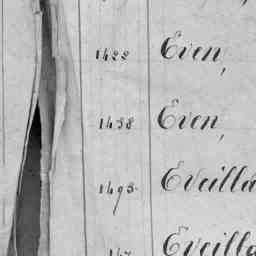 1422 Even,
1438 Even,
1493. Eveilla
Eveilla